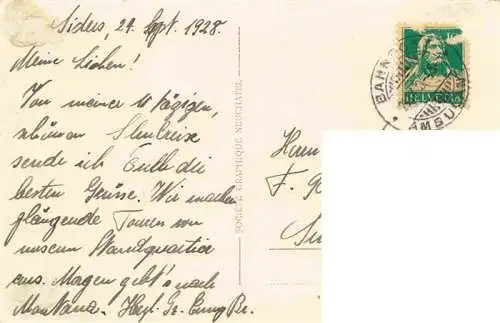 Siders, 24. Sept. 1928.
Meine Lieben!
Von meiner 11 tägigen,
schönen
sende ich Euch die
besten Grüsse. Wir machen
glänzende Touren von
unserm Standquartier
aus. Morgen geht's nach
Montana. Herzl. Gr.
SOCIÉTÉ GRAPHIQUE NEUCHATEL
HELVETIA
BAHNPOST
AMBULANT
Herrn
F.